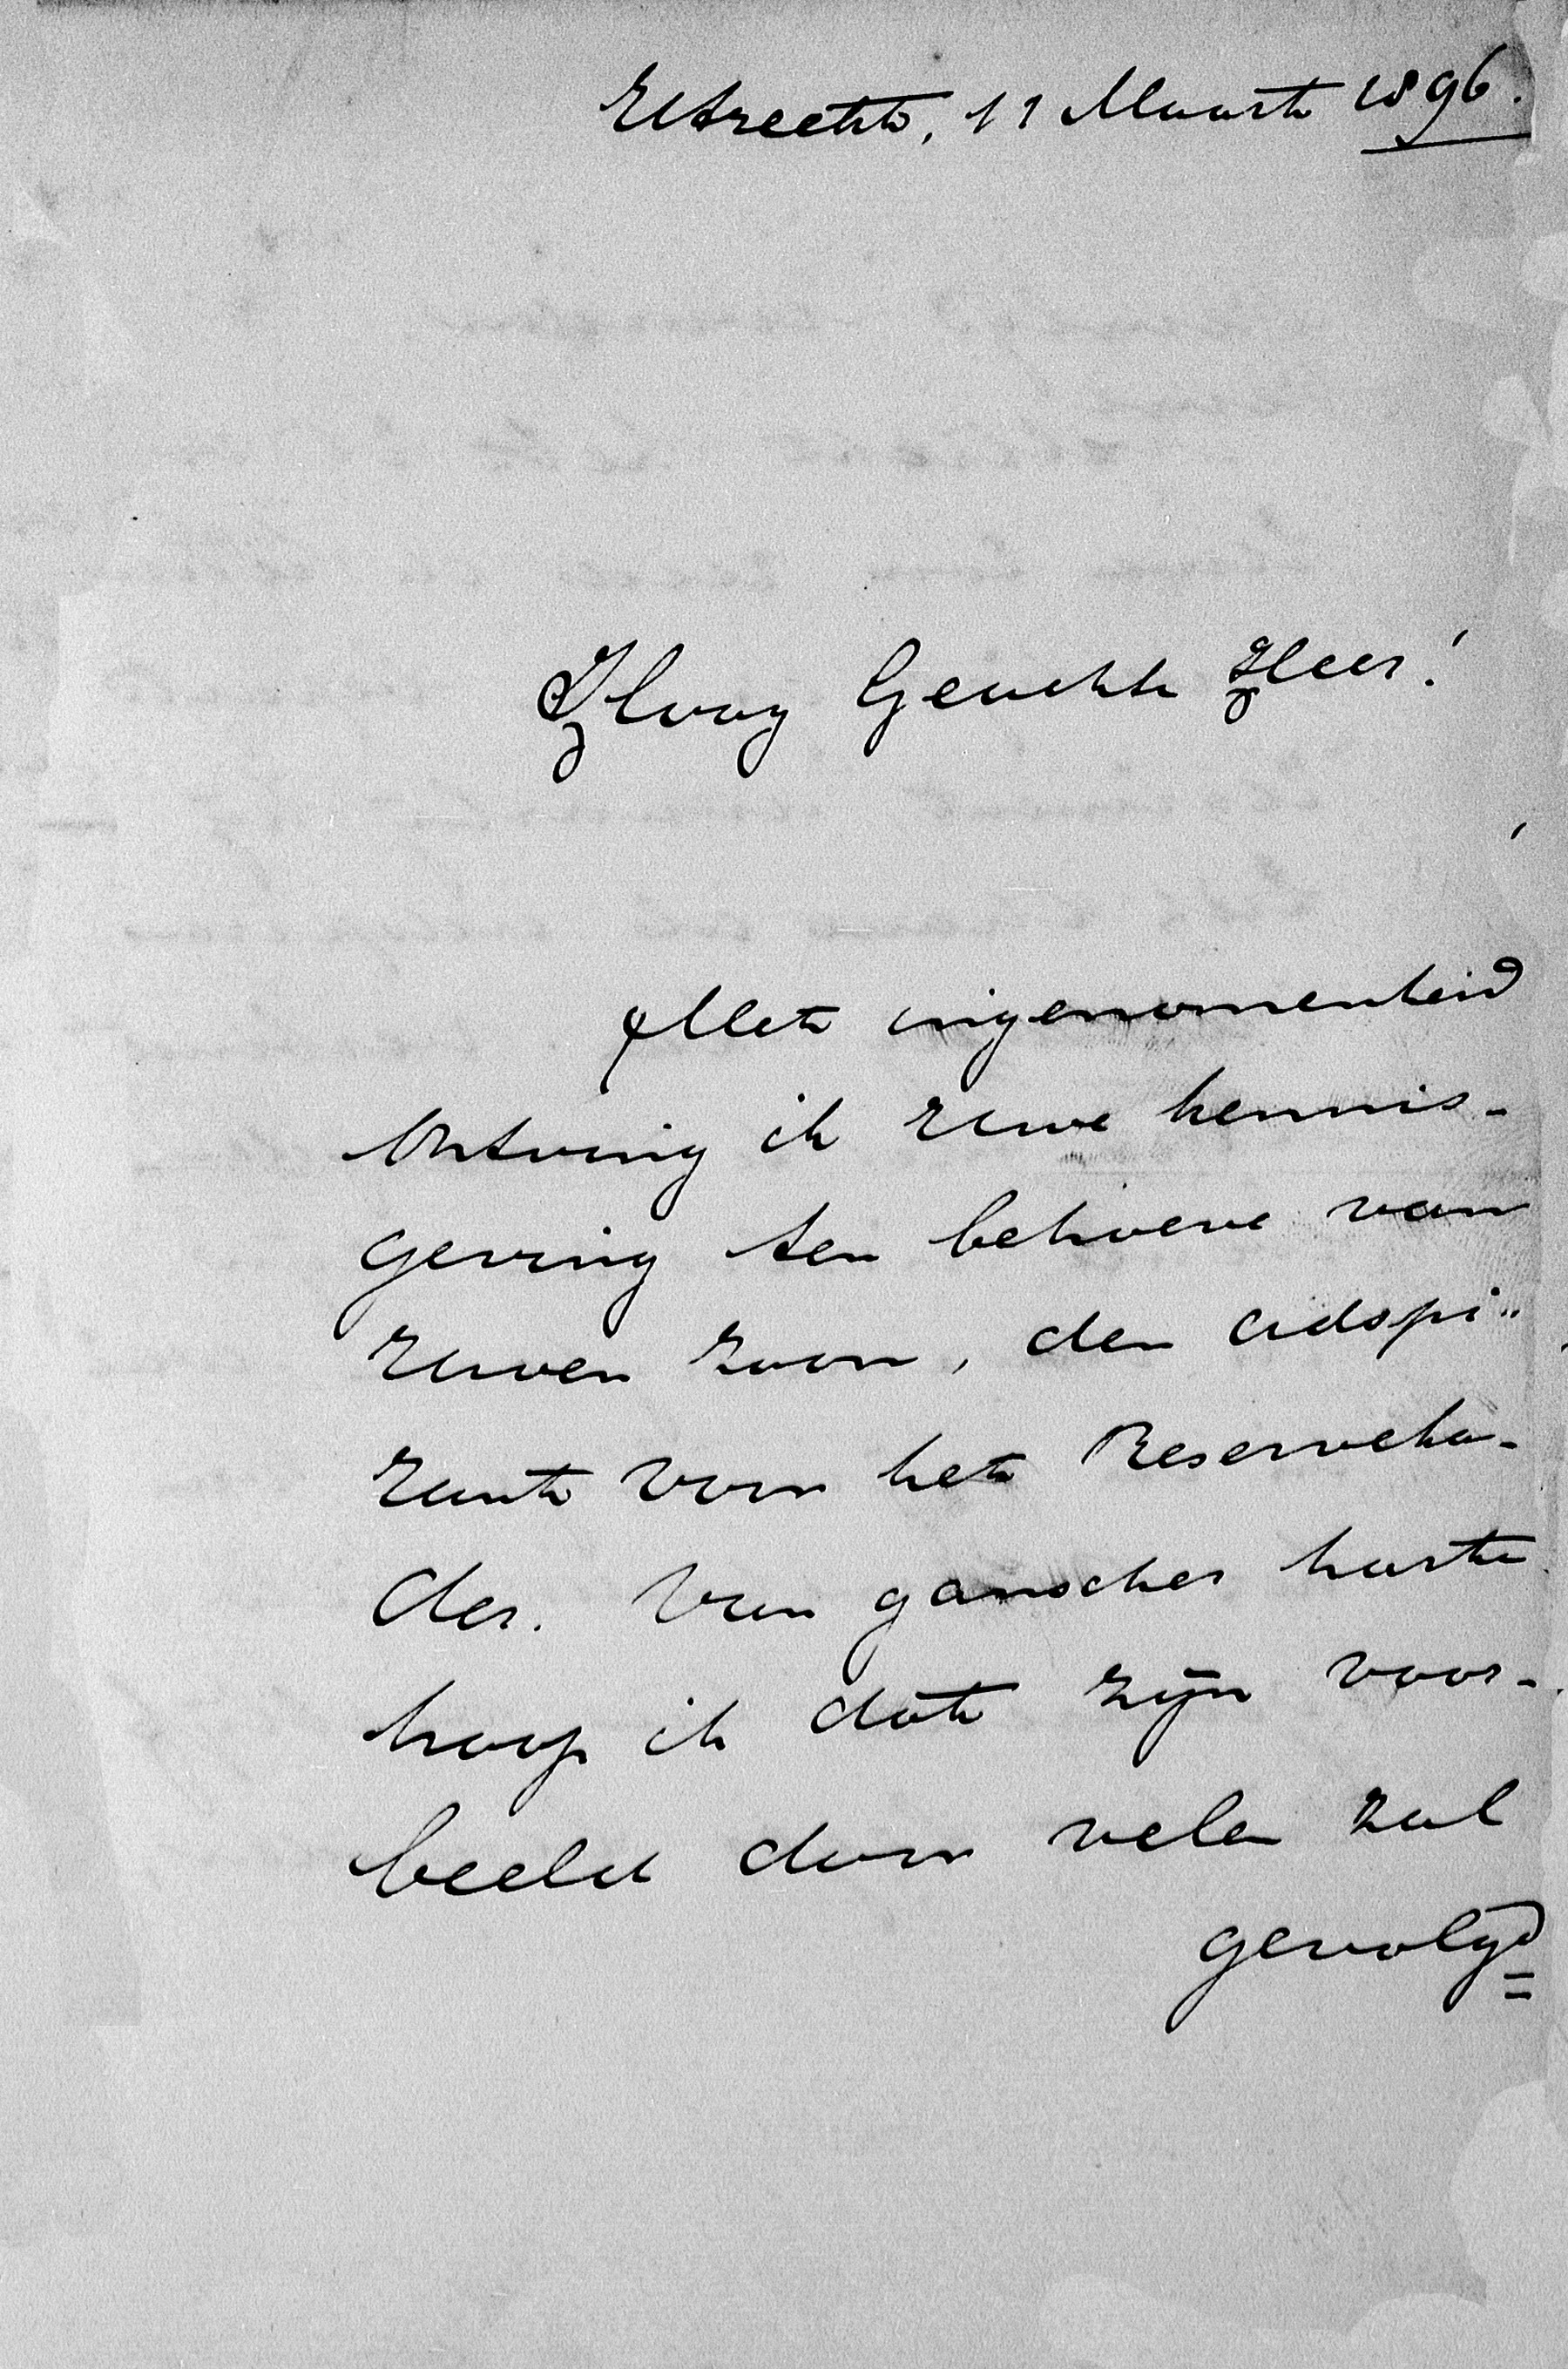 Utrecht, 11 Maart 1896.
Hoog Geachte Heer!
Met ingenomenheid
ontving ik Uwe kennis-
geving ten behoeve van
Uwen zoon, den Adspi-
rant voor het Reserveka-
der. Van ganscher harte
hoop ik dat zijn voor-
beeld door velen zal
gevolgd